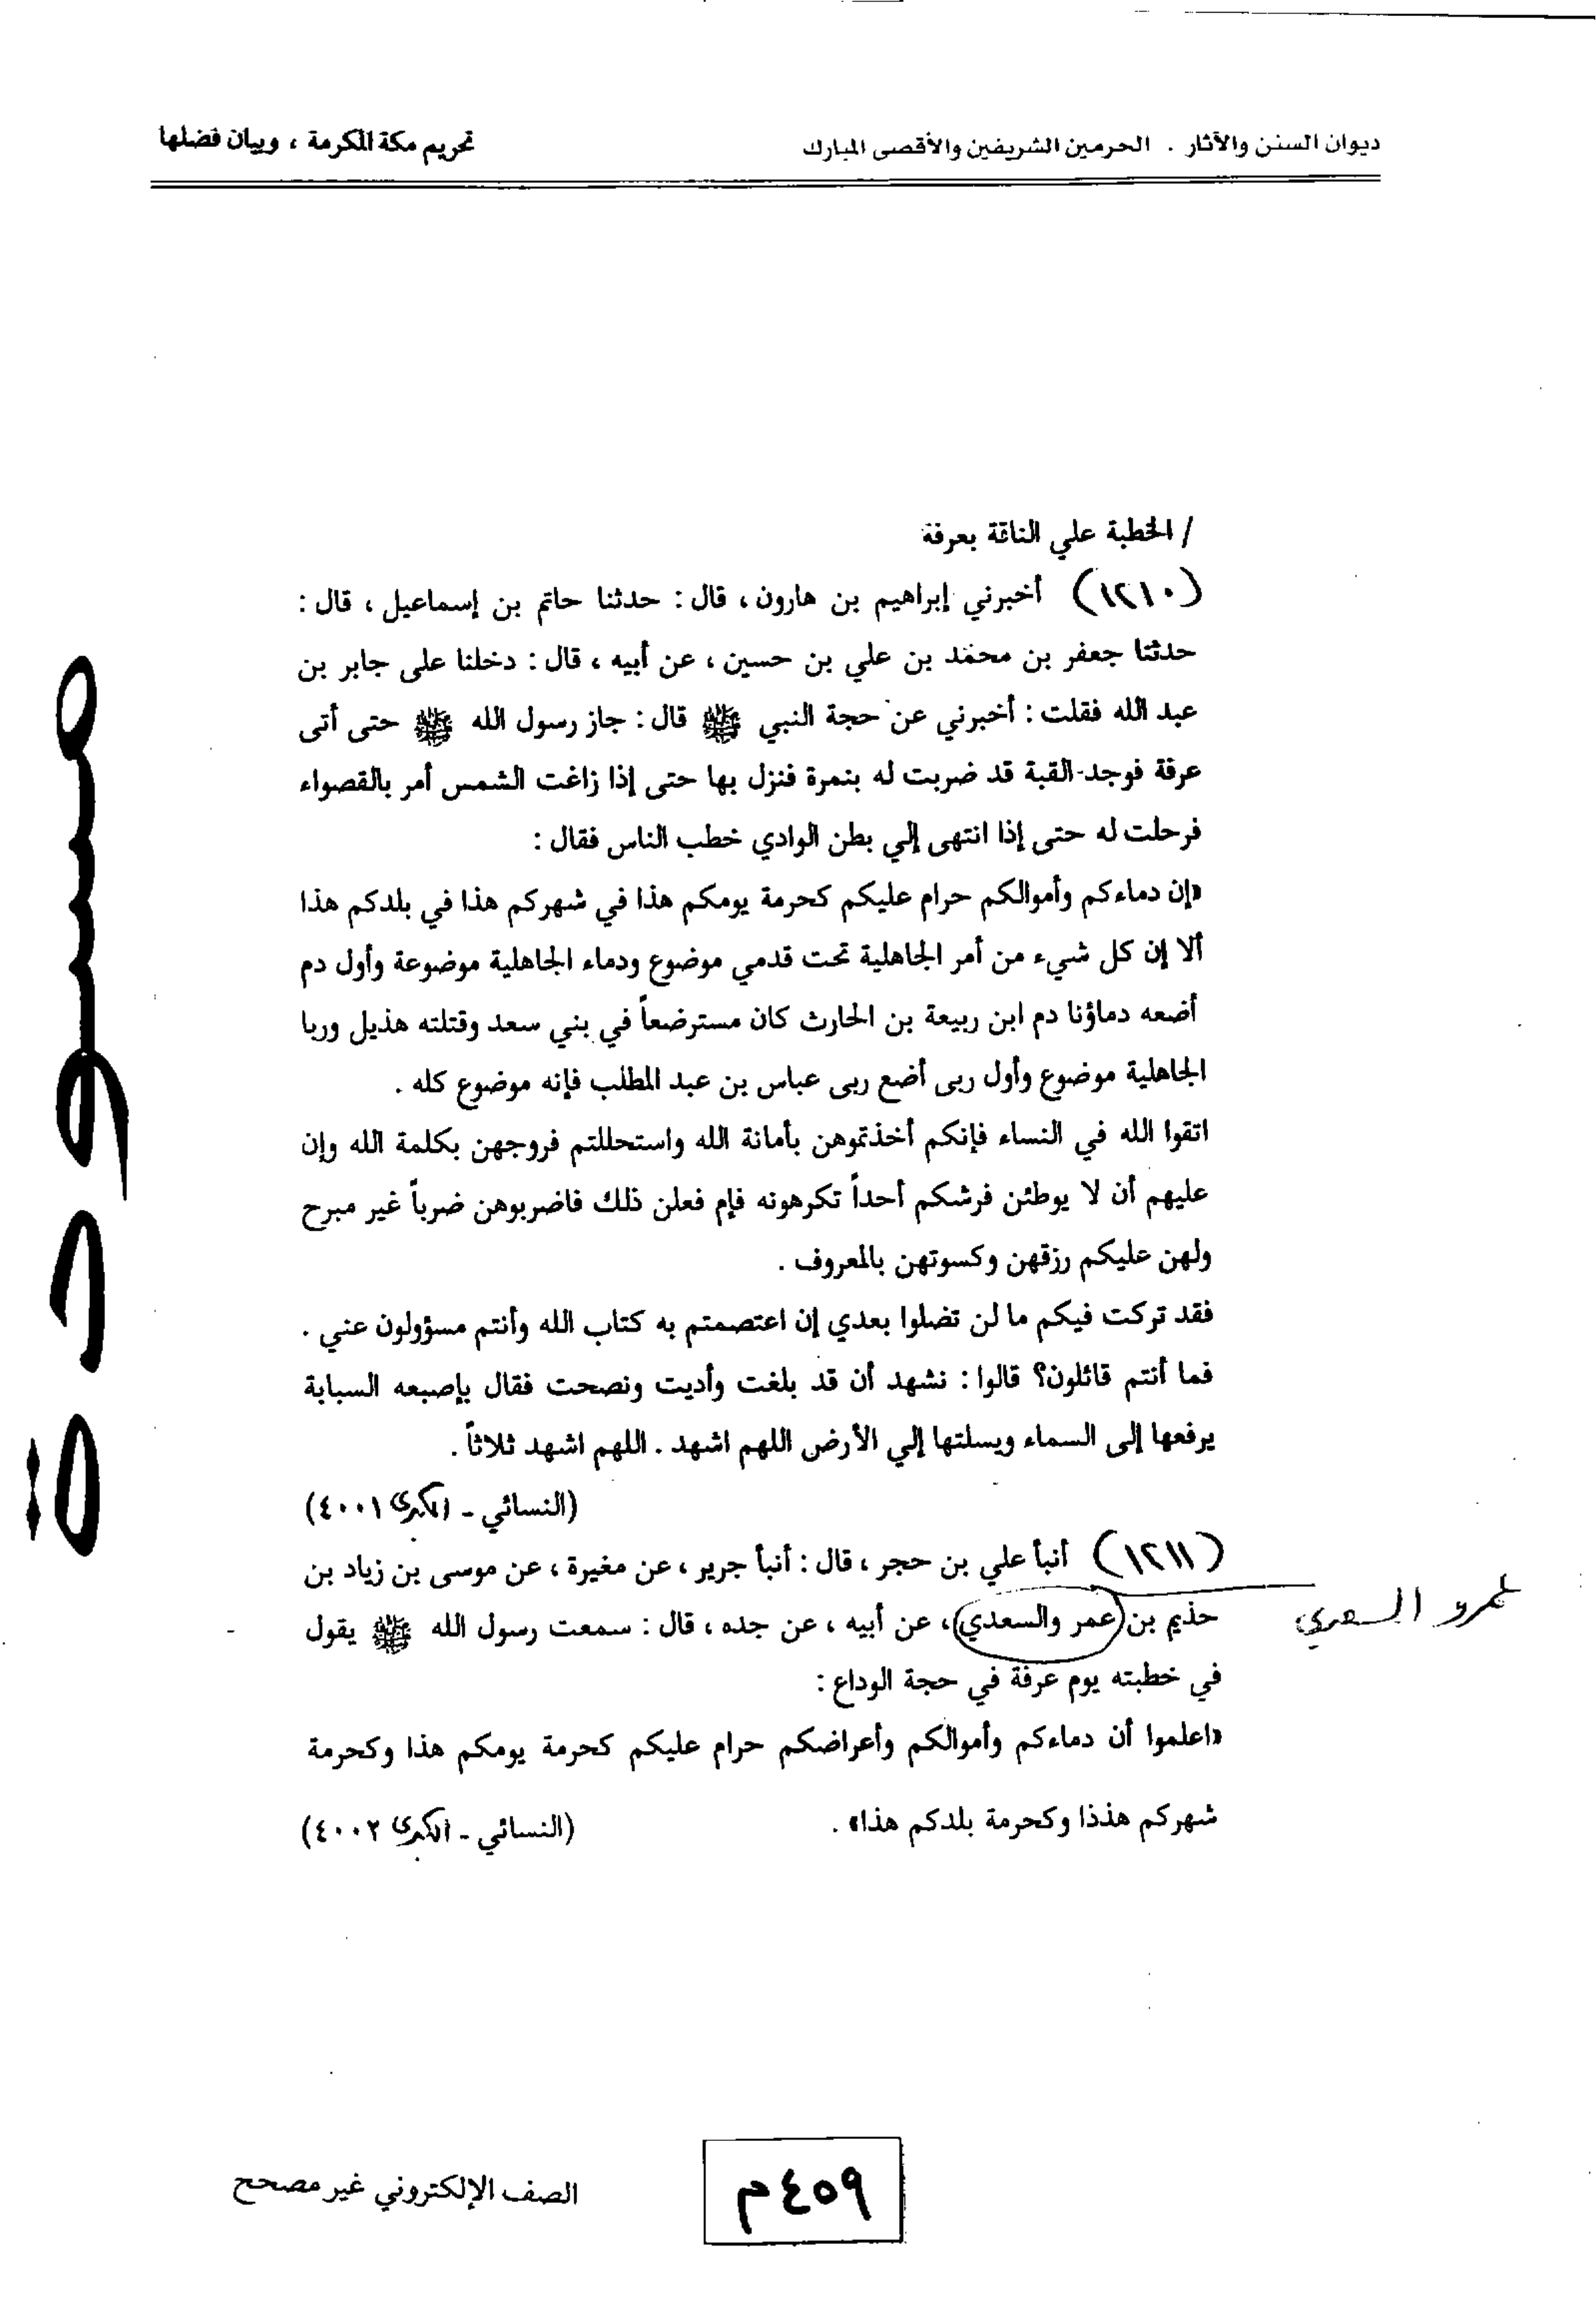 ديوان السنن والآثار . الحرمين الشريفين والأقصى المبارك
تحريم مكة المكرمة ، وبيان فضلها
/ الخطبة علي الناقة بعرفة
(١٢١٠) أخبرني إبراهيم بن هارون ، قال : حدثنا حاتم بن إسماعيل ، قال :
حدثنا جعفر بن محمد بن علي بن حسين ، عن أبيه ، قال : دخلنا على جابر بن
عبد الله فقلت : أخبرني عن حجة النبي ﷺ قال : جاز رسول الله ﷺ حتى أتى
عرفة فوجد القبة قد ضربت له بنمرة فنزل بها حتى إذا زاغت الشمس أمر بالقصواء
فرحلت له حتى إذا انتهى إلي بطن الوادي خطب الناس فقال :
«إن دماءكم وأموالكم حرام عليكم كحرمة يومكم هذا في شهركم هذا في بلدكم هذا
ألا إن كل شيء من أمر الجاهلية تحت قدمي موضوع ودماء الجاهلية موضوعة وأول دم
أضعه دماؤنا دم ابن ربيعة بن الحارث كان مسترضعاً في بني سعد وقتلته هذيل وربا
الجاهلية موضوع وأول ربى أضع ربى عباس بن عبد المطلب فإنه موضوع كله .
اتقوا الله في النساء فإنكم أخذتموهن بأمانة الله واستحللتم فروجهن بكلمة الله وإن
عليهم أن لا يوطئن فرشكم أحداً تكرهونه فإم فعلن ذلك فاضربوهن ضرباً غير مبرح
ولهن عليكم رزقهن وكسوتهن بالمعروف .
فقد تركت فيكم ما لن تضلوا بعدي إن اعتصمتم به كتاب الله وأنتم مسؤولون عني .
فما أنتم قائلون؟ قالوا : نشهد أن قد بلغت وأديت ونصحت فقال بإصبعه السبابة
يرفعها إلى السماء ويسلتها إلي الأرض اللهم اشهد . اللهم اشهد ثلاثاً .
(النسائي - الكبرى ٤٠٠١)
(١٢١١) أنبأ علي بن حجر ، قال : أنبأ جرير ، عن مغيرة ، عن موسى بن زياد بن
حذيم بن عمر والسعدي ، عن أبيه ، عن جده ، قال : سمعت رسول الله ﷺ يقول
عمرو السعدي
في خطبته يوم عرفة في حجة الوداع :
«اعلموا أن دماءكم وأموالكم وأعراضكم حرام عليكم كحرمة يومكم هذا وكحرمة
شهركم هذذا وكحرمة بلدكم هذا» . (النسائي - الكبرى ٤٠٠٢)
مسودة
٤٥٩م
الصف الإلكتروني غير مصحح